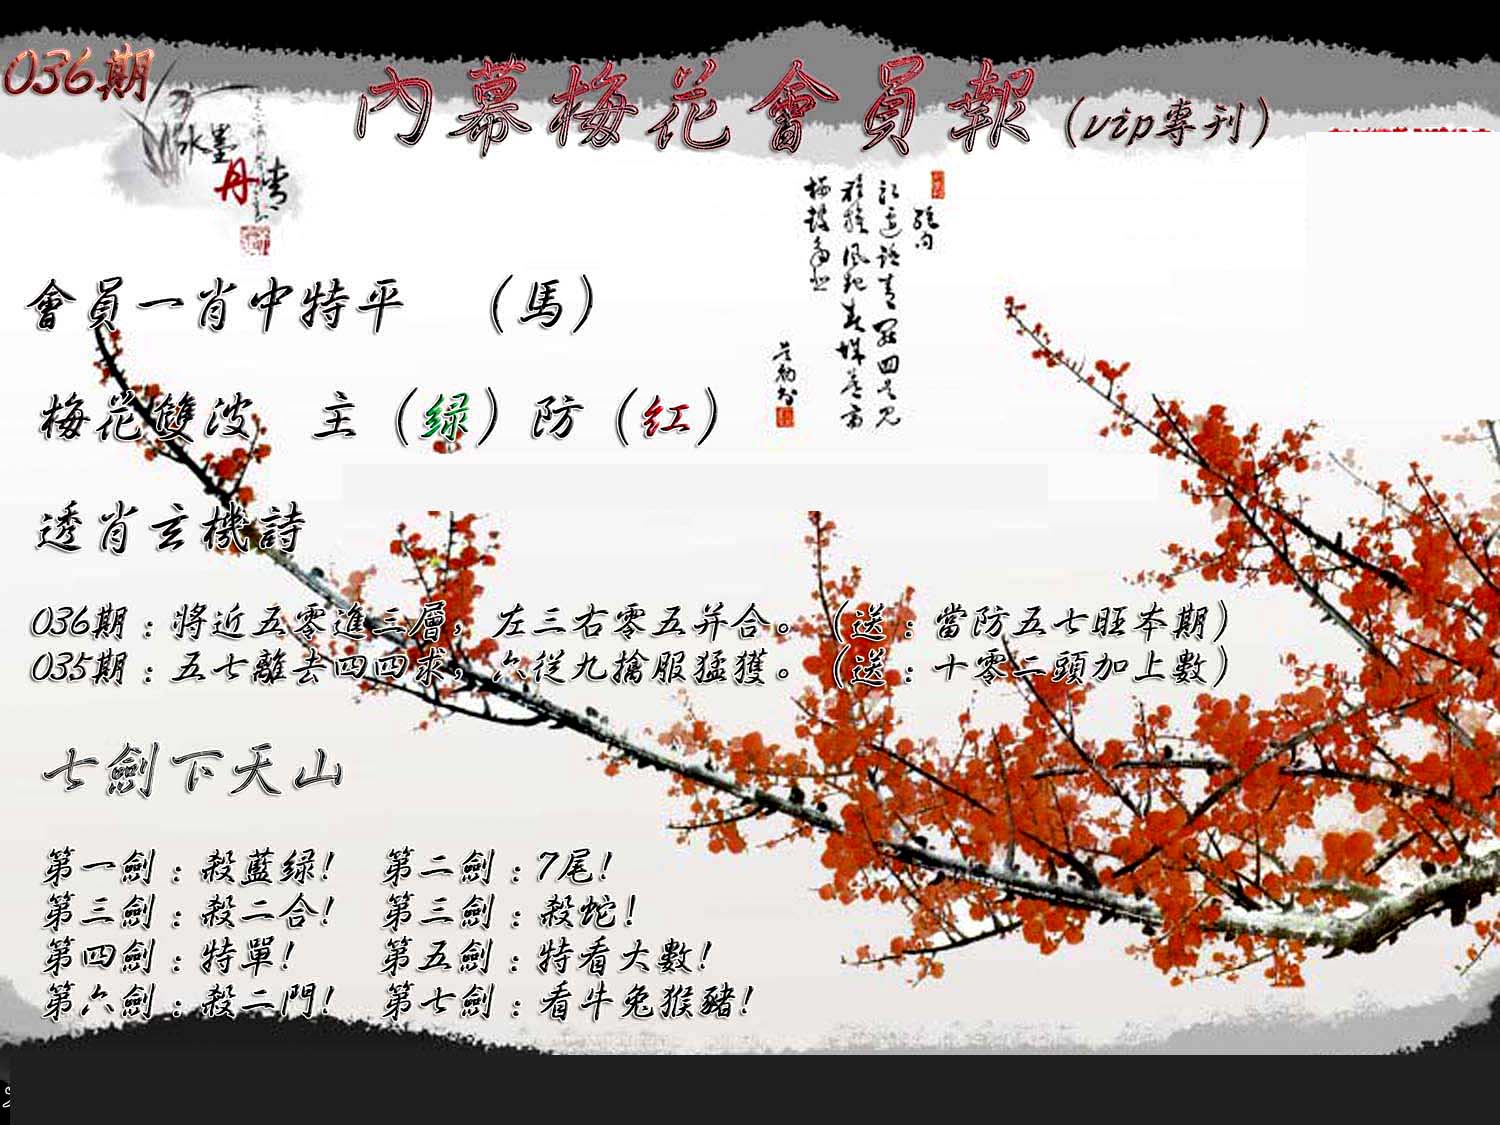 036期
內幕梅花會員報（vip專刊）
水墨
丹青
會員一肖中特平 （馬）
梅花雙波 主（绿）防（红）
透肖玄機詩
036期：將近五零進三層，左三右零五并合。（送：當防五七旺本期）
035期：五七離去四四求，六從九擒服猛獲。（送：十零二頭加上數）
七劍下天山
第一劍：殺藍绿！ 第二劍：7尾！
第三劍：殺二合！ 第三劍：殺蛇！
第四劍：特單！ 第五劍：特看大數！
第六劍：殺二門！ 第七劍：看牛兔猴豬！